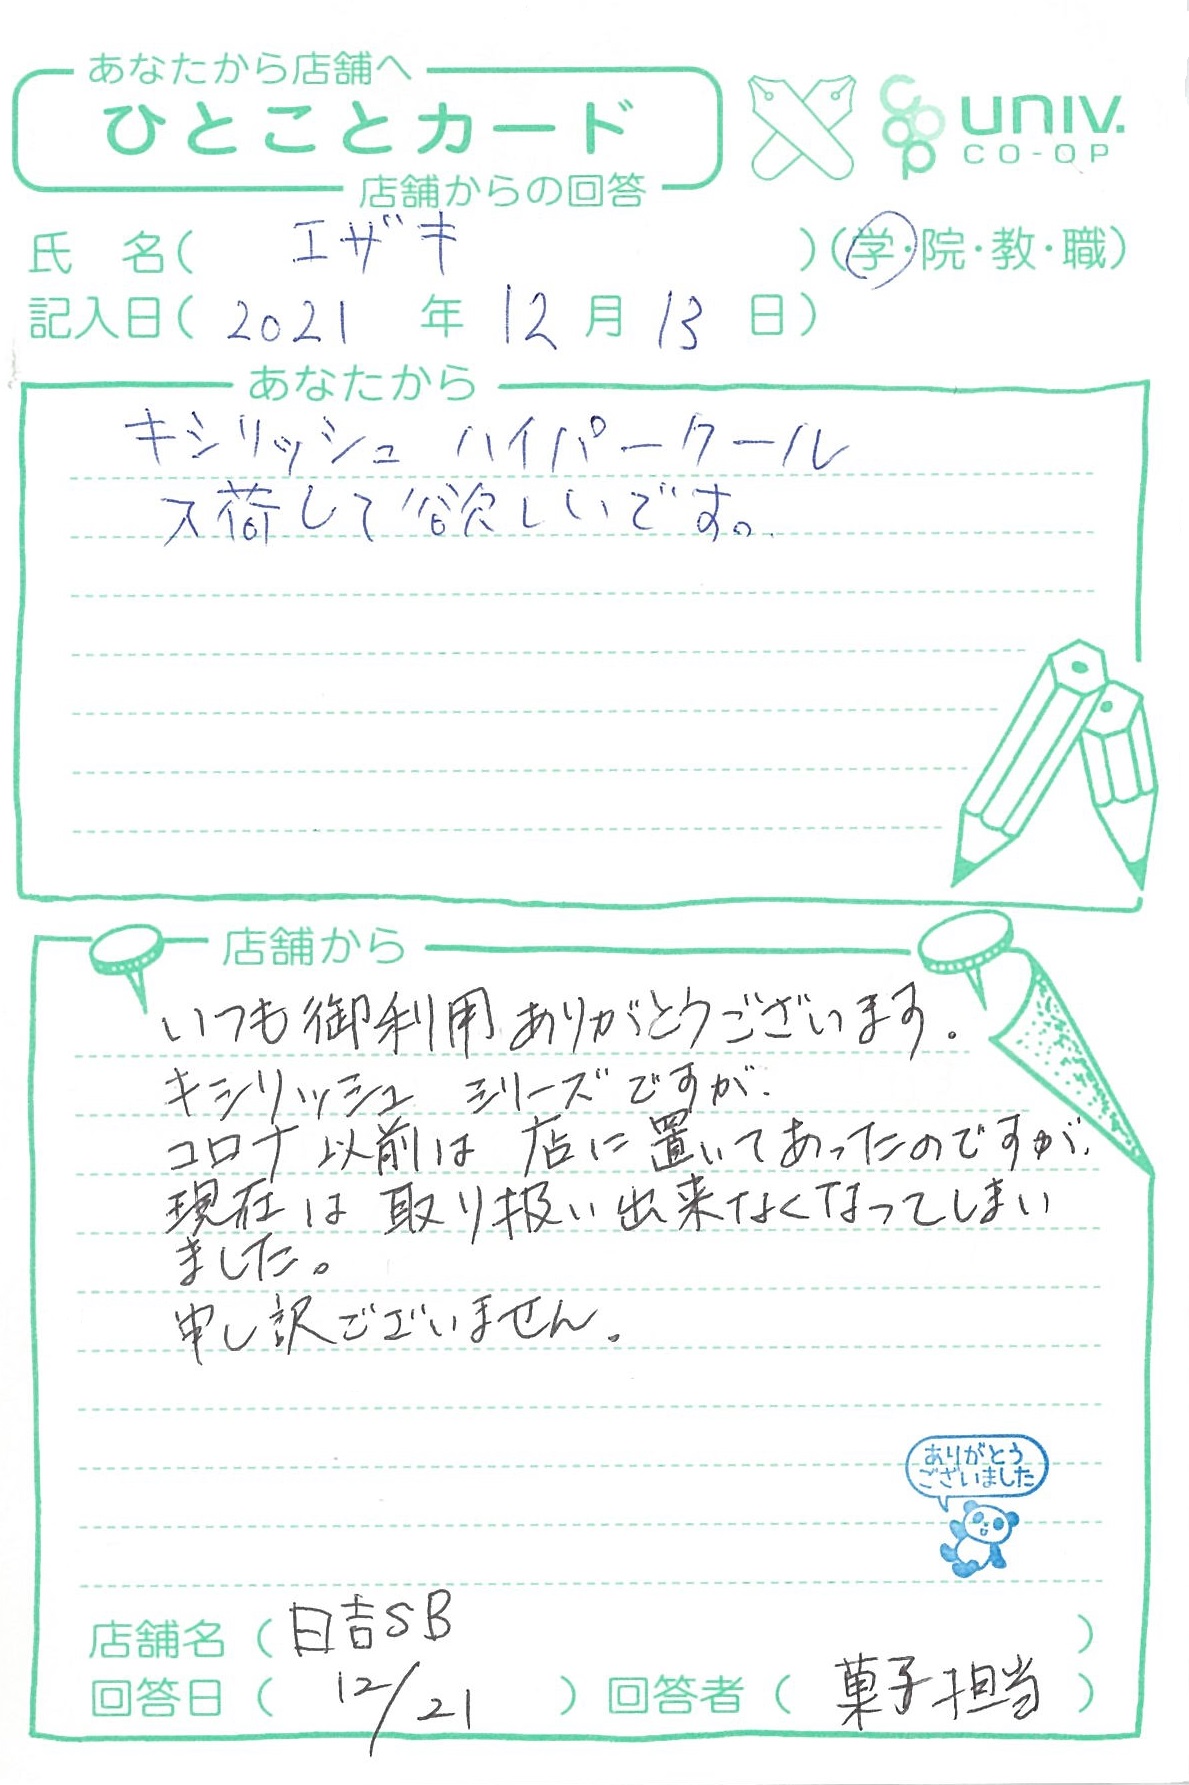 あなたから店舗へ
ひとことカード
店舗からの回答
univ.
CO-OP
氏 名( エザキ )(学・院・教・職)
記入日( 2021 年 12 月 13 日)
あなたから
キシリッシュ ハイパークール
入荷して欲しいです。
店舗から
いつも御利用ありがとうございます.
キシリッシュ シリーズですが.
コロナ以前は 店に置いてあったのですが.
現在は取り扱い出来なくなってしまい
ました。
申し訳ございません.
ありがとう
ございました
店舗名( 日吉SB )
回答日( 12/21 ) 回答者( 菓子担当 )